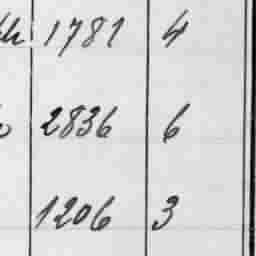 1781 4
2836 6
1206 3